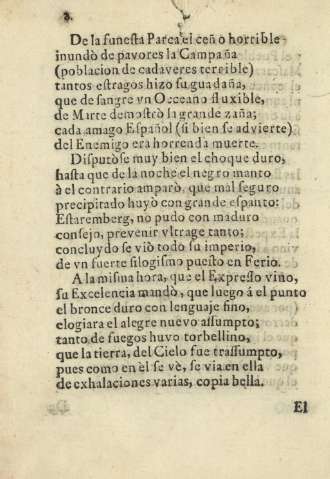 De la funesta Parca el ceño horrible
inundò de pavores la Campaña
(poblacion de cadaveres terrible)
tantos estragos hizo su guadaña,
que de sangre vn Occeano fluxible,
de Marte demostrò la grande zaña;
cada amago Español (si bien se advierte)
del Enemigo era horrenda muerte.
Disputòse muy bien el choque duro,
hasta que de la noche el negro manto
à el contrario amparò, que mal seguro
precipitado huyò con grande espanto:
Estaremberg, no pudo con maduro
consejo, prevenir vltrage tanto;
concluydo se viò todo su imperio,
de vn fuerte silogismo puesto en Ferio.
A la misma hora, que el Expresso vino,
su Excelencia mandò, que luego á el punto
el bronce duro con lenguaje fino,
elogiara el alegre nuevo assumpto;
tanto de fuegos huvo torbellino,
que la tierra, del Cielo fue trassumpto,
pues como en èl se vè, se via en ella
de exhalaciones varias, copia bella.
El